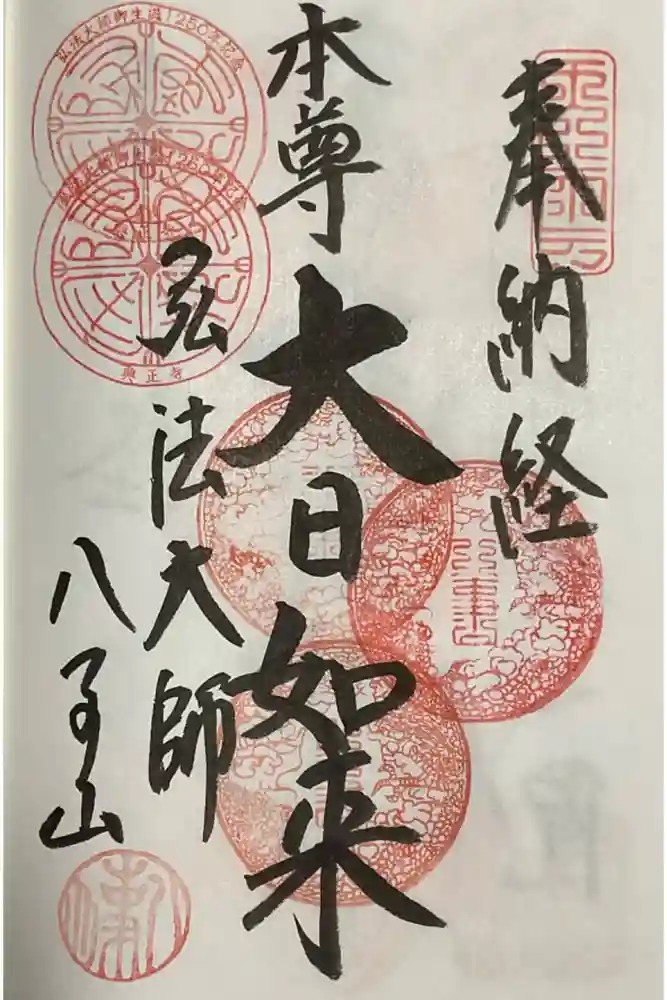 奉納経
本尊 大日如来
弘法大師
八事山
弘法大師御生誕1250年記念
興正寺